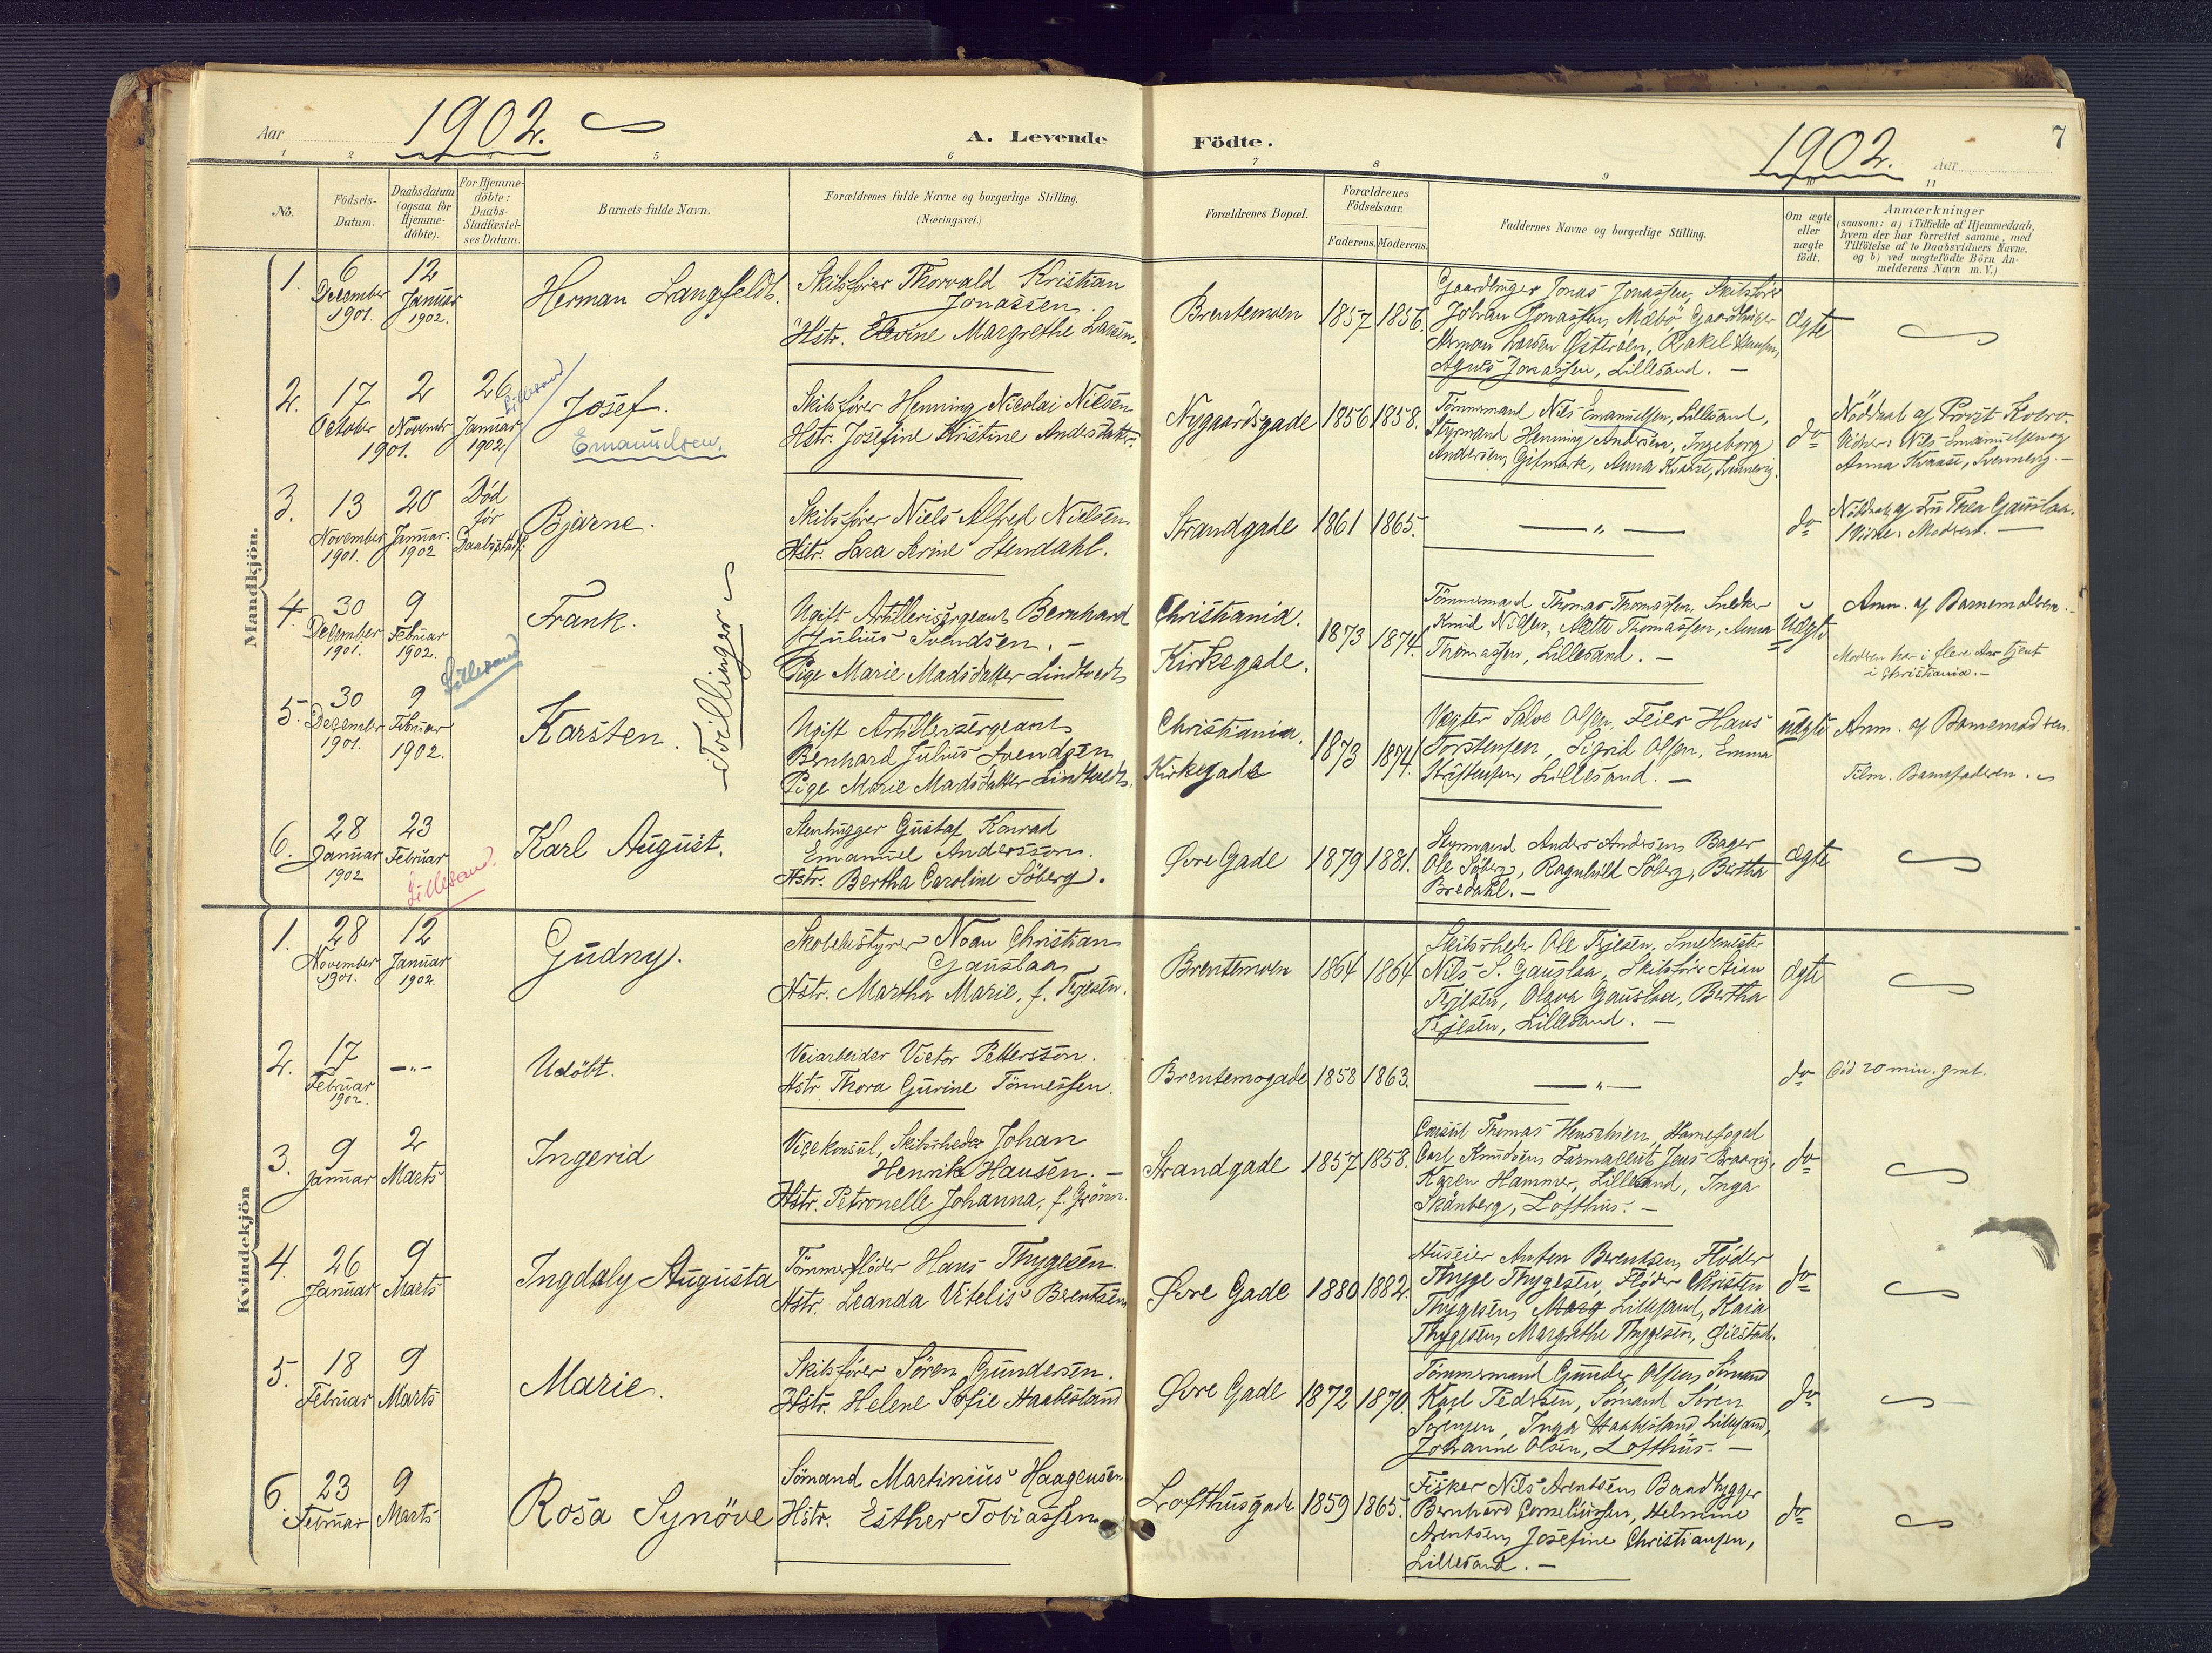 Aar
1902.
A. Levende
Födte.
1902.
Aar
7
1
2
5
6
7
8
9
10
11
No.
Födsels-
Datum.
Daabsdatum
(ogsaa for
Hjemme-
döbte).
For Hjemme-
döbte:
Daabs-
Stadfæstel-
ses Datum.
Barnets fulde Navn.
Forældrenes fulde Navne og borgerlige Stilling.
(Næringsvei.)
Forældrenes Bopæl.
Forældrenes
Födselsaar.
Faderens.
Moderens.
Faddernes Navne og borgerlige Stilling.
Om ægte
eller
uægte
födt.
Anmærkninger
(saasom: a) i Tilfælde af Hjemmedaab,
hvem der har forrettet samme, med
Tilföielse af to Daabsvidners Navne.
og b) ved uægtefödte Börn An-
melderens Navn m. V.)
Mandkjön.
1.
6
December
1901.
12
Januar
1902.
Herman Langfeldt.
Skibsfører Thorvald Kristian
Jonassen.
Hstr. Elevine Margrethe Larsen.
Brentemoen
1857
1856.
Gaardbruger Jonas Jonassen, Skibsfører
Johan Jonassen, Mæbö, Gaardbruger
Herman Larsen Østerøen, Rakel
Agnes Jonassen, Lillesand. –
Ægte
2.
17
October
2
November
1901.
26
Januar
1902.
Lillesand
Josef.
Emanuelsen.
Skibsfører Henning Nicolai Nielsen
Hstr. Josefine Kristine Andersdatter.
Nygaardsgade
1856
1858.
Tömmermand Nils Emanuelsen, Lillesand,
Styrmand Henning Andersen, Ingeborg
Andersen, Gitmark, Anna Kvaase, Svennevig.
do
Nöddaab af Provst Kolvo.
Vidner: Nils Emanuelsen og
Anna Kvaase, Svennevig. –
3.
13
November
1901.
20
Januar.
1902
Död
før
Daabsstadf.
Bjarne.
Skibsfører Niels Alfred Nielsen
Hstr. Sara Serine Stendahl.
Strandgade
1861
1865.
— " —
do
Nöddaab af Fru Thea Gauslaa.
Vidne: Moderen. –
4.
30
December
1901.
9
Februar
1902.
Lillesand
Frank.
Tvillinger
Ugift Artillerisergeant Bernhard
Julius Svendsen. –
Pige Marie Madsdatter Lindtvedt
Christiania.
Kirkegade.
1873
1874.
Tömmermand Thomas Thomassen, Snedker
Knud Nilsen, Mette Thomassen, Anna
Thomassen, Lillesand. –
Uægte
Anm. af Barnemoderen. –
Moderen har i flere Aar tjent
i Christiania. –
5.
30
December
1901.
9
Februar
1902.
Karsten.
Ugift Artillerisergeant
Bernhard Julius Svendsen
Pige Marie Madsdatter Lindtvedt.
Christiania.
Kirkegade
1873
1874.
Vægter Salve Olsen, Feier Hans
Torstensen, Sigrid Olsen, Emma
Kristensen, Lillesand. –
uægte
Anm. af Barnemoderen.
Tilm. Barnefaderen.
6.
28
Januar
1902
23
Februar
Lillesand.
Karl August.
Stenhugger Gustaf Konrad
Emanuel Andersson.
Hstr. Bertha Caroline Söberg.
Øvre Gade
1879
1881.
Styrmand Anders Andersen, Bager
Ole Söberg, Ragnhild Söberg, Bertha
Bredahl. –
ægte
Kvindekjön
1.
28
November
1901.
12
Januar
1902.
Gudny.
Skolebestyrer Noan Christian
Gauslaa
Hstr. Martha Marie, f. Terjesen.
Brentemoen
1864
1864
Skibsrheder Ole Terjesen, Smedemester
Nils S. Gauslaa, Skibsfører Stian
Terjesen, Olava Gauslaa, Bertha
Terjesen, Lillesand. –
ægte
2.
17
Februar
1902.
—"—
Udöbt.
Veiarbeider Victor Pettersson.
Hstr. Thora Gurine Tönnessen.
Brentemogade
1858
1863.
— " —
do
Död 20 min. gml.
3.
9
Januar
2
Marts
Ingerid
Vicekonsul, Skibsrheder Johan
Henrik Hansen. –
Hstr. Petronelle Johanna, f. Grönn.
Strandgade
1857
1858.
Consul Thomas Henschien, Havnefoged
Carl Knudsen, Farmaceut Jens Braarvig,
Karen Hammer, Lillesand, Inga
Skånberg, Lofthus. –
do
4.
26
Januar
9
Marts
Ingdaly Augusta
Tömmerfløder Hans Thygesen.
Hstr. Leanda Vitelis Berntsen
Øvre Gade
1880
1882.
Huseier Anton Berentsen, Fløder
Thyge Thygesen, Fløder Christen
Thygesen, Marg Lillesand, Kaia
Thygesen, Margrethe Thygesen, Øiestad.
do
5.
18
Februar
9
Marts
Marie.
Skibsfører Sören Gundersen.
Hstr. Helene Sofie Haabesland
Øvre Gade
1872
1870.
Tömmermand Gunder Olsen, Sömand
Karl Pedersen, Sömand Sören
Sörensen, Inga Haabesland, Lillesand,
Johanne Olsen, Lofthus. –
do
6.
23
Februar
9
Marts
Rosa Synöve
Sömand Martinius Haagensen
Hstr. Esther Tobiassen
Lofthusgade
1859
1865.
Fisker Nils Arentsen, Baadbygger
Bernhard Corneliussen, Helmine
Arentsen, Josefine Christiansen,
Lillesand. –
do